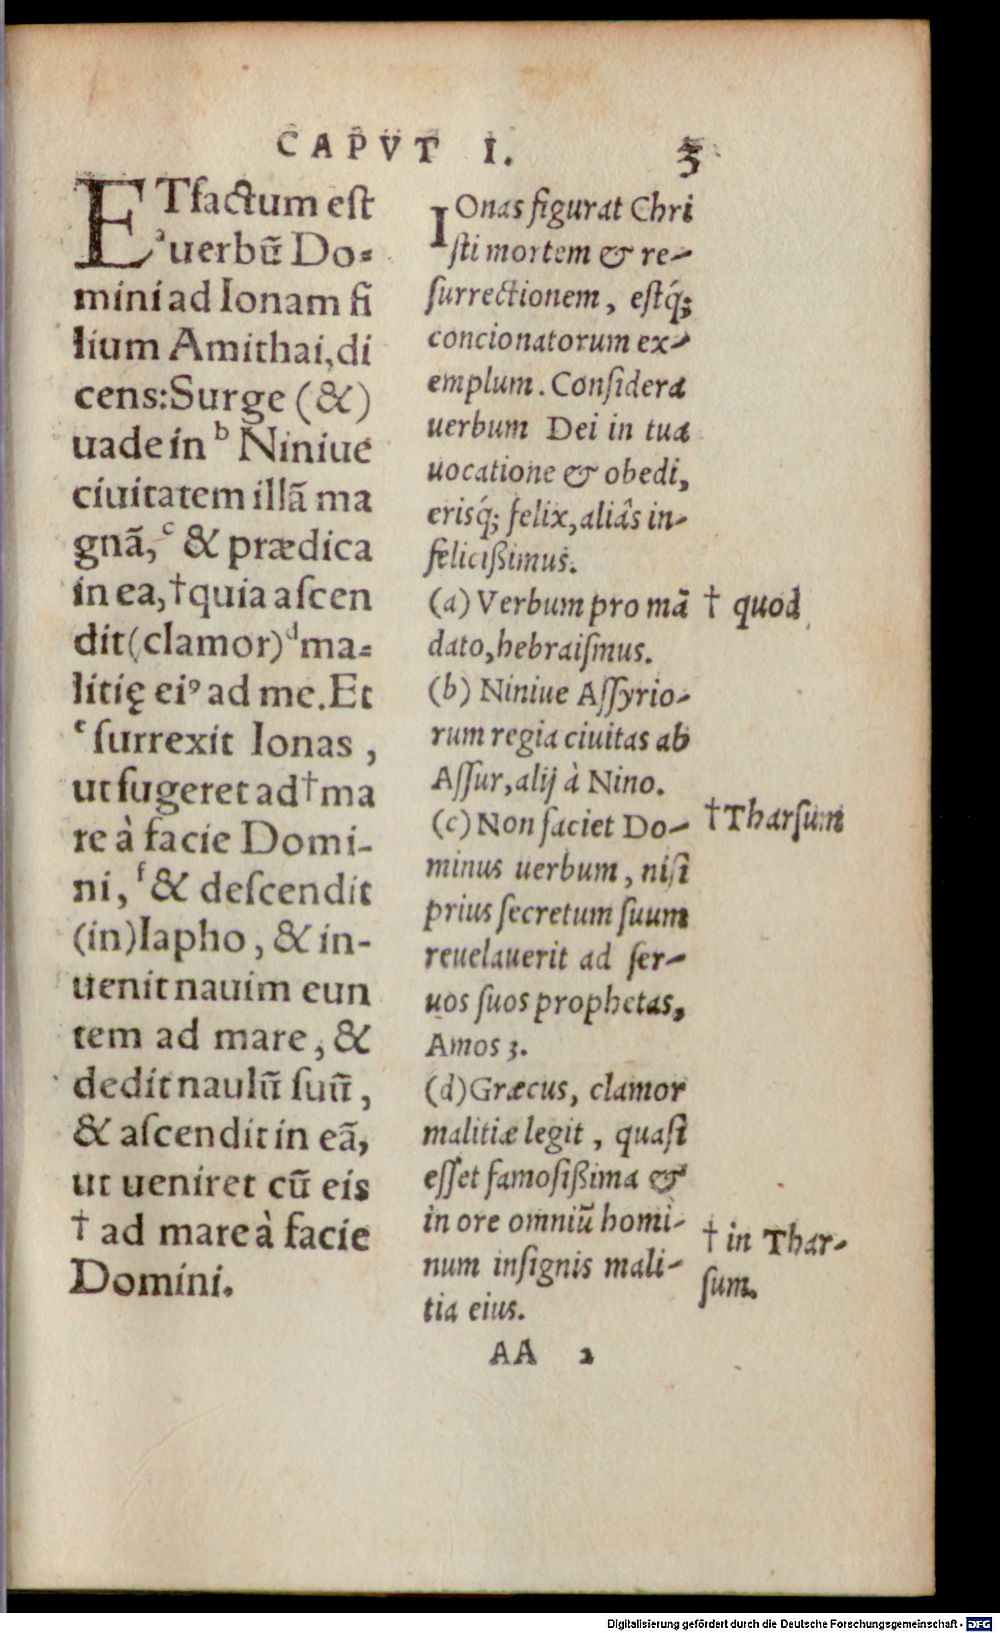 CAPVT I. 3
ET factum est
ᵃuerbũ Do=
mini ad Ionam fi
lium Amithai, di
cens: Surge (&)
uade in ᵇ Niniue
ciuitatem illã ma
gnã, ᶜ & prædica
in ea, †quia aſcen
dit (clamor) ᵈma=
litię eiꝰ ad me. Et
ᵉ ſurrexit Ionas,
ut fugeret ad †ma
re à facie Domi-
ni, ᶠ & deſcendit
(in) Iapho, & in-
uenit nauim eun
tem ad mare, &
dedit naulũ ſuũ,
& aſcendit in eã,
ut ueniret cũ eis
† ad mare à facie
Domini.
IOnas figurat Chri
ſti mortem & re-
ſurrectionem, eſtq́;
concionatorum ex-
emplum. Conſidera
uerbum Dei in tua
uocatione & obedi,
erisq́; felix, aliâs in-
felicißimus.
(a) Verbum pro mã
dato, hebraiſmus.
(b) Niniue Aſſyrio-
rum regia ciuitas ab
Aſſur, alij à Nino.
(c) Non faciet Do-
minus uerbum, niſi
prius ſecretum ſuum
reuelauerit ad ſer-
uos ſuos prophetas,
Amos 3.
(d) Græcus, clamor
malitiæ legit, quaſi
eſſet famoſißima &
in ore omniũ homi-
num inſignis mali-
tia eius.
† quod
† Tharſum
† in Thar-
ſum.
AA 2
Digitalisierung gefördert durch die Deutsche Forschungsgemeinschaft - DFG